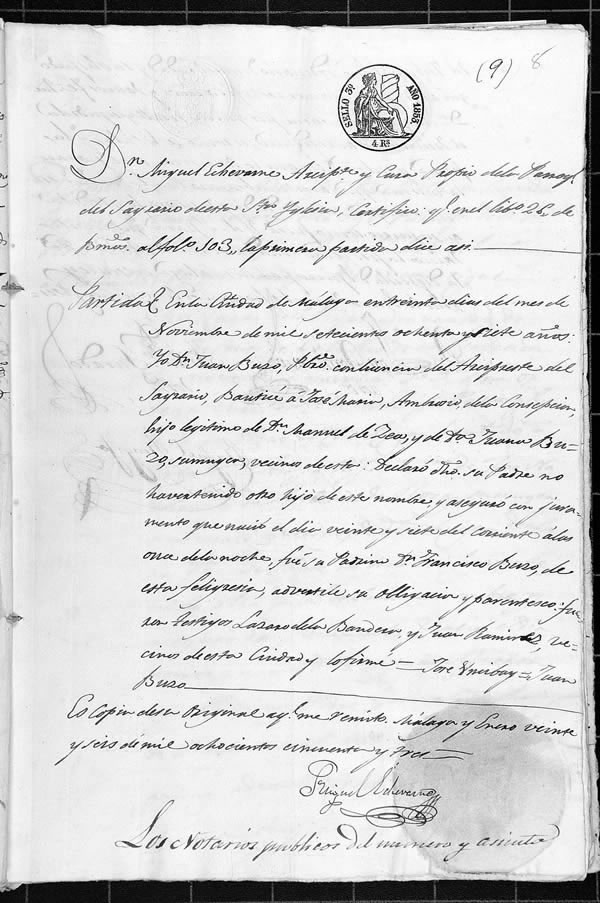 (9) 8
SELLO 3º AÑO 1853.
4 Rs
Dn. Miguel Echeverne Arcipte y Cura Propio dela Parroql
del Sagrario desta Sta Yglesia, Certifico: ql enel libº 26, de
Bmos. al folº 103,, la primera partida dice asi.
Partida } Enla Ciudad de Málaga entreinta dias del mes de
Noviembre de mil setecientos ochenta y siete años:
Yo Dn Juan Buzo, Pbro. con licencia del Arcipreste del
Sagrario, Bauticé á José Maria, Ambrocio, dela Consepcion,
hijo legitimo de Dn Manuel de Zea, y de Da Juana Bu=
zo, su muger, vecinos de esta: Declaró dho. su Padre no
haver tenido otro hijo de este nombre, y aseguró con jura-
mento que nació el dia veinte y siete del corriente álas
once dela noche, fué su Padrino Dn Francisco Buzo, de
esta feligresia, advertile su obligacion y parentesco: fue-
ron testigos Lazaro dela Bandera, y Juan Ramirez, ve-
cinos de esta Ciudad y lo firmé= José = Juan
Buzo
Es Copia desu Original aql me remito. Málaga y Enero veinte
y seis de mil ochocientos cincuenta y tres=
Miguel Echeverne
Los Notarios publicos del numero y asiento